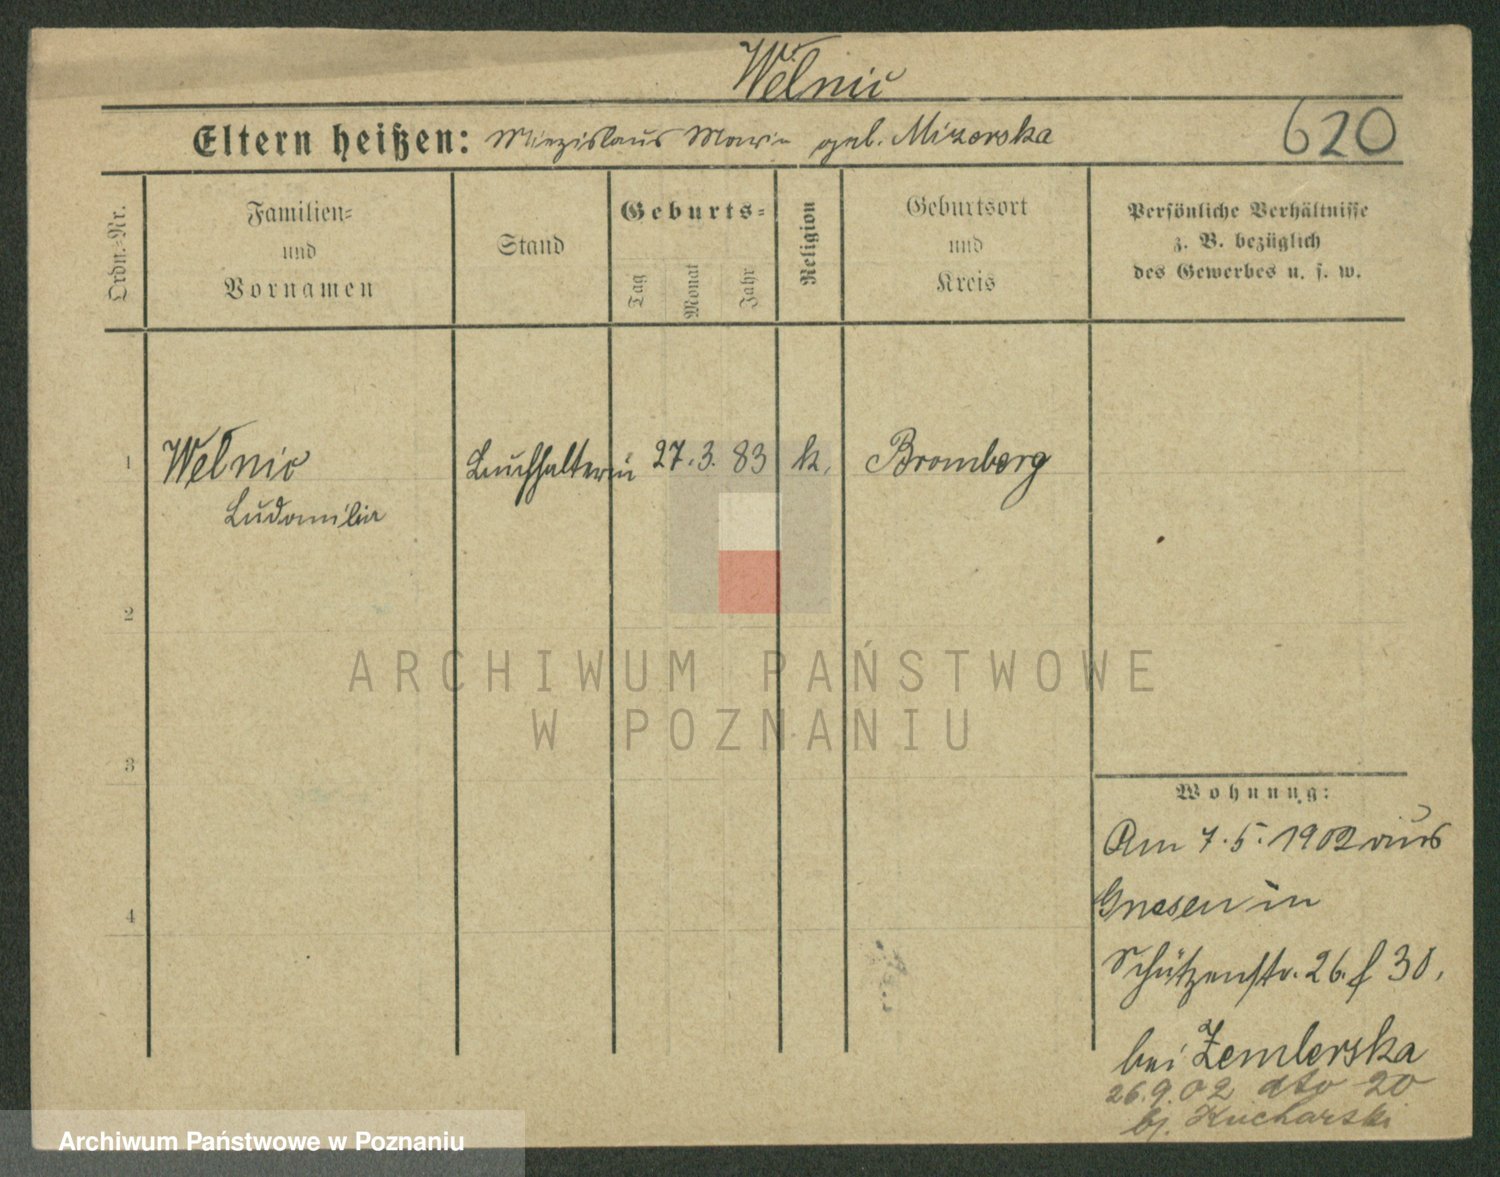 Welnic
Eltern heißen: Miezislaus Maria geb. Mizerska
620
Ordn.=Nr.
Familien=
und
Vornamen
Stand
Geburts=
Tag
Monat
Jahr
Religion
Geburtsort
und
Kreis
Persönliche Verhältnisse
z. B. bezüglich
des Gewerbes u. s. w.
1 Welnic Buchhalterin 27.3. 83 k. Bromberg
Ludomilia
2
3
4
Wohnung:
Am 7.5.1902 aus
Gnesen in
Schützenstr. 26. f 30.
bei Zemlerska
26.9.02 dto 20
bj. Kucharski
ARCHIWUM PAŃSTWOWE
W POZNANIU
Archiwum Państwowe w Poznaniu